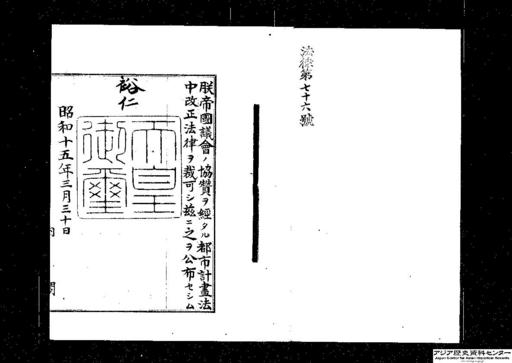 法律第七十六號
朕帝國議會ノ協贊ヲ經タル都市計畫法
中改正法律ヲ裁可シ茲ニ之ヲ公布セシム
裕仁
天皇
御璽
昭和十五年三月三十日
内閣
アジア歴史資料センター
Japan Center for Asian Historical Records